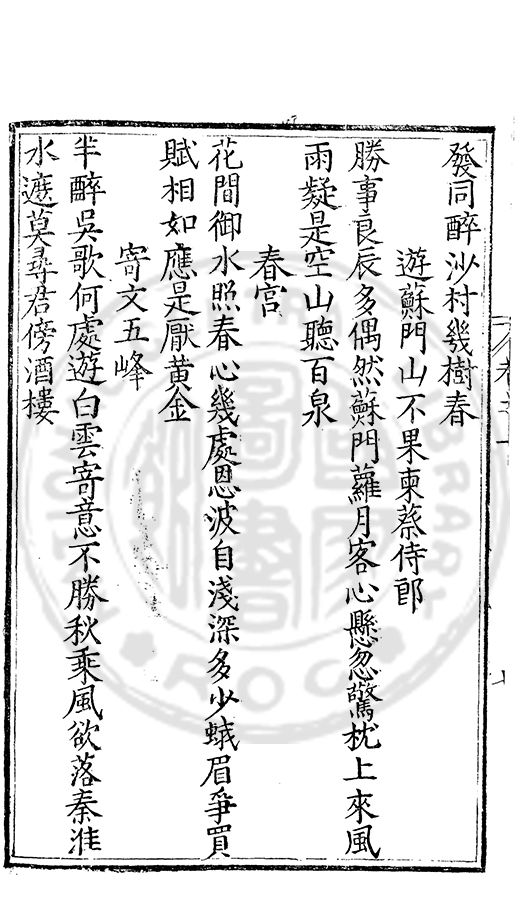 發同醉沙村幾樹春
遊蘇門山不果柬蔡侍郎
勝事良辰多偶然蘇門蘿月客心懸忽驚枕上來風
雨凝是空山聽百泉
春宮
花間御水照春心幾處恩波自淺深多少蛾眉爭買
賦相如應是厭黄金
寄文五峰
半醉吳歌何處遊白雲寄意不勝秋乘風欲落秦淮
水遮莫尋君傍酒樓